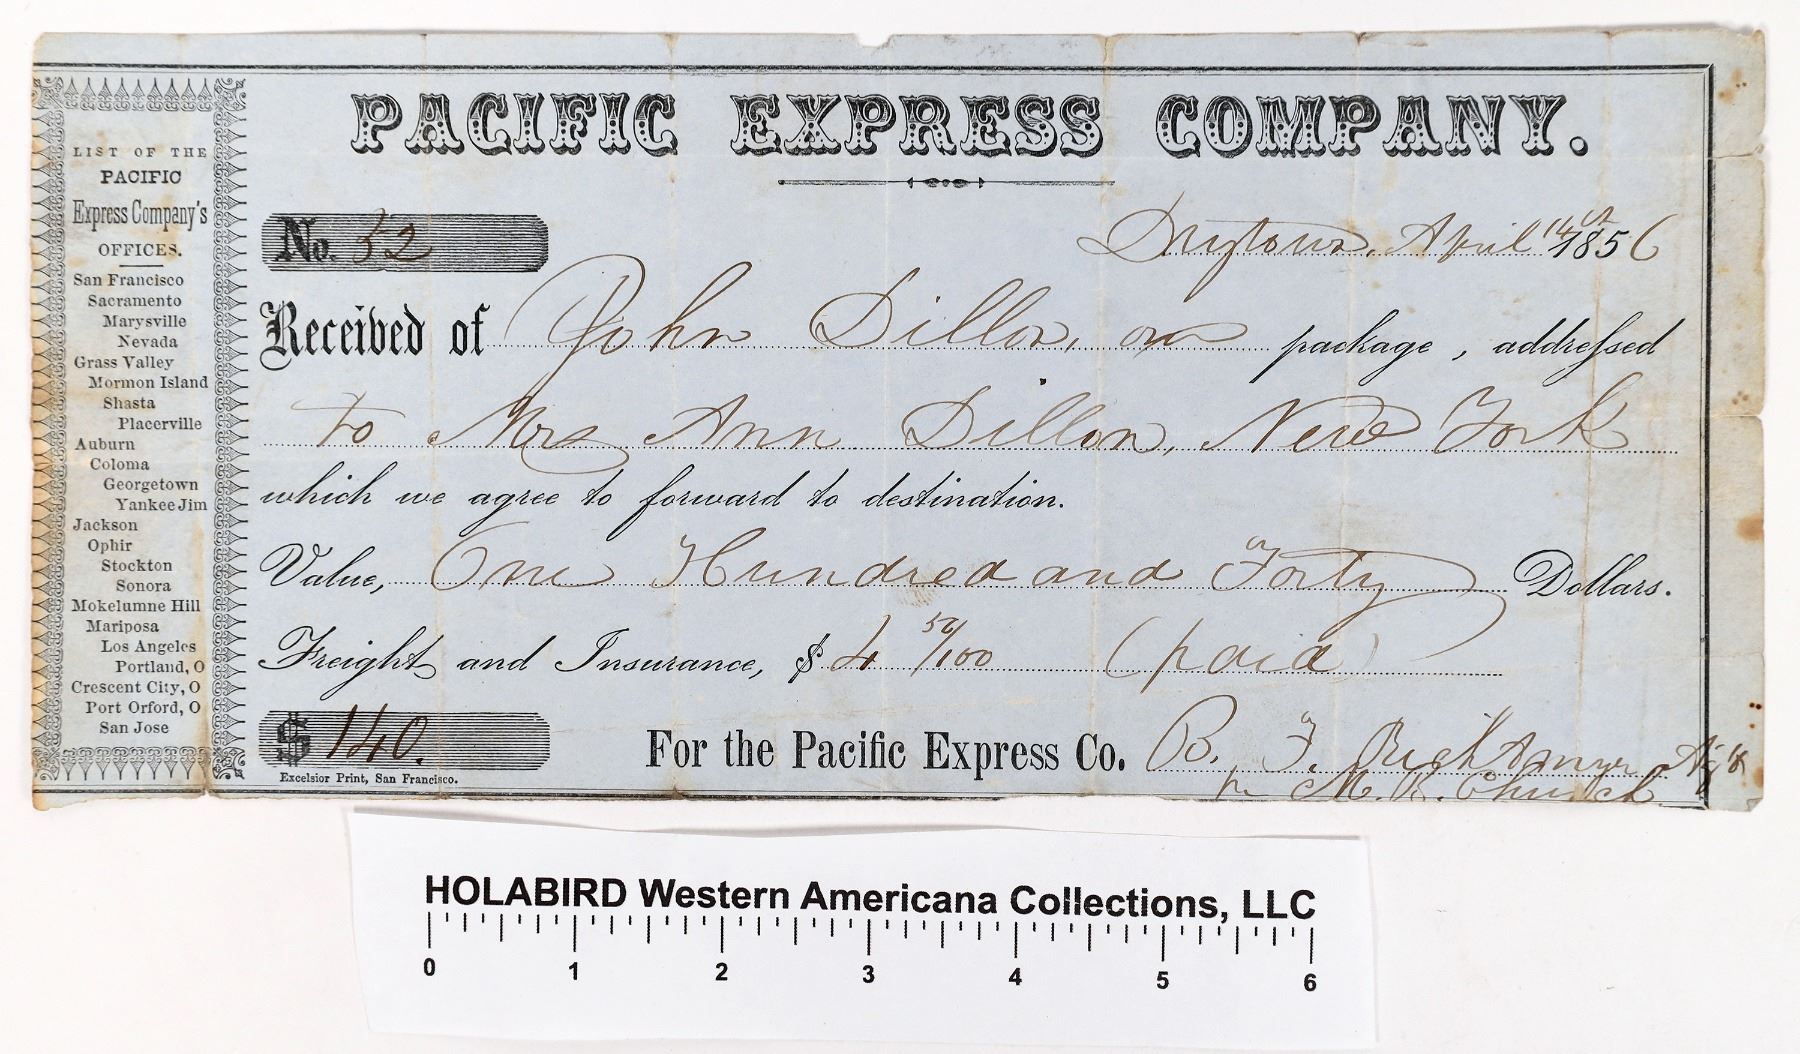 PACIFIC EXPRESS COMPANY.
LIST OF THE
PACIFIC
Express Company's
OFFICES.
San Francisco
Sacramento
Marysville
Nevada
Grass Valley
Mormon Island
Shasta
Placerville
Auburn
Coloma
Georgetown
Yankee Jim
Jackson
Ophir
Stockton
Sonora
Mokelumne Hill
Mariposa
Los Angeles
Portland, O
Crescent City, O
Port Orford, O
San Jose
No. 52
Drytown, April 14th 1856
Received of John Dillon, one package, addressed
to Mrs Ann Dillon, New York
which we agree to forward to destination.
Value, One Hundred and Forty Dollars.
Freight and Insurance, $ 4 /100 (paid)
$ 140.
For the Pacific Express Co. B. F. Agt
Excelsior Print, San Francisco.
pr M. Church
HOLABIRD Western Americana Collections, LLC
0 1 2 3 4 5 6